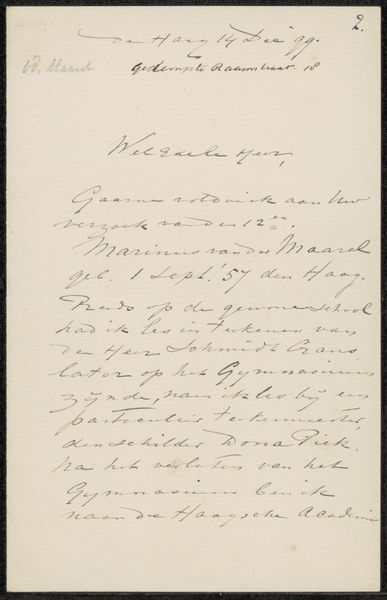 2.
den Haag 14 Dec 99.
Gedempte Raamstraat 18
vd. Maarel
WelEdele Heer,
Gaarne voldoe ik aan Uw
verzoek van den 12en.
Marinus van der Maarel
geb. 1 Sept. '57 den Haag.
Reeds op de gewone school
had ik les in teekenen van
den Heer Schmidt Crans,
later op het Gymnasium
zijnde, nam ik les bij een
particulier teekenmeester,
den schilder Dona Piek.
Na het verlaten van het
Gymnasium ben ik
naar de Haagsche Academie